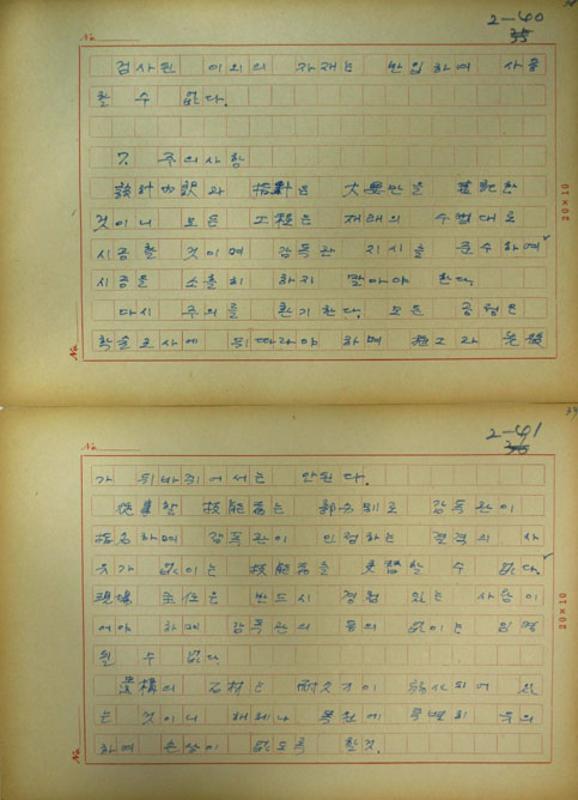 2-40
35
No.
검사된 이외의 자재는 반입하여 사용
할 수 없다.
7. 주의사항
設計內訳과 指針은 大要만을 摘記한
것이니 모든 工程은 재래의 수법대로
시공할 것이며 감독관 지시를 준수하여
시공을 소홀히 하지 말아야 한다.
다시 주의를 환기한다. 모든 공정은
학술조사에 뒤따라야 하며 先後
20×10
No.
2-41
No.
가 뒤바뀌어서는 안된다.
從事할 技能者는 部分別로 감독관이
指名하며 감독관이 인정하는 결격의 사
유가 없이는 技能者를 交替할 수 없다.
現場主任은 반드시 경험 있는 사람이
어야 하며 감독관의 동의 없이는 임명
될 수 없다.
遺構의 石材는 耐久力이 弱화되어 있
는 것이니 해체나 복원에 특별히 주의
하여 손상이 없도록 할것.
20×10
No.